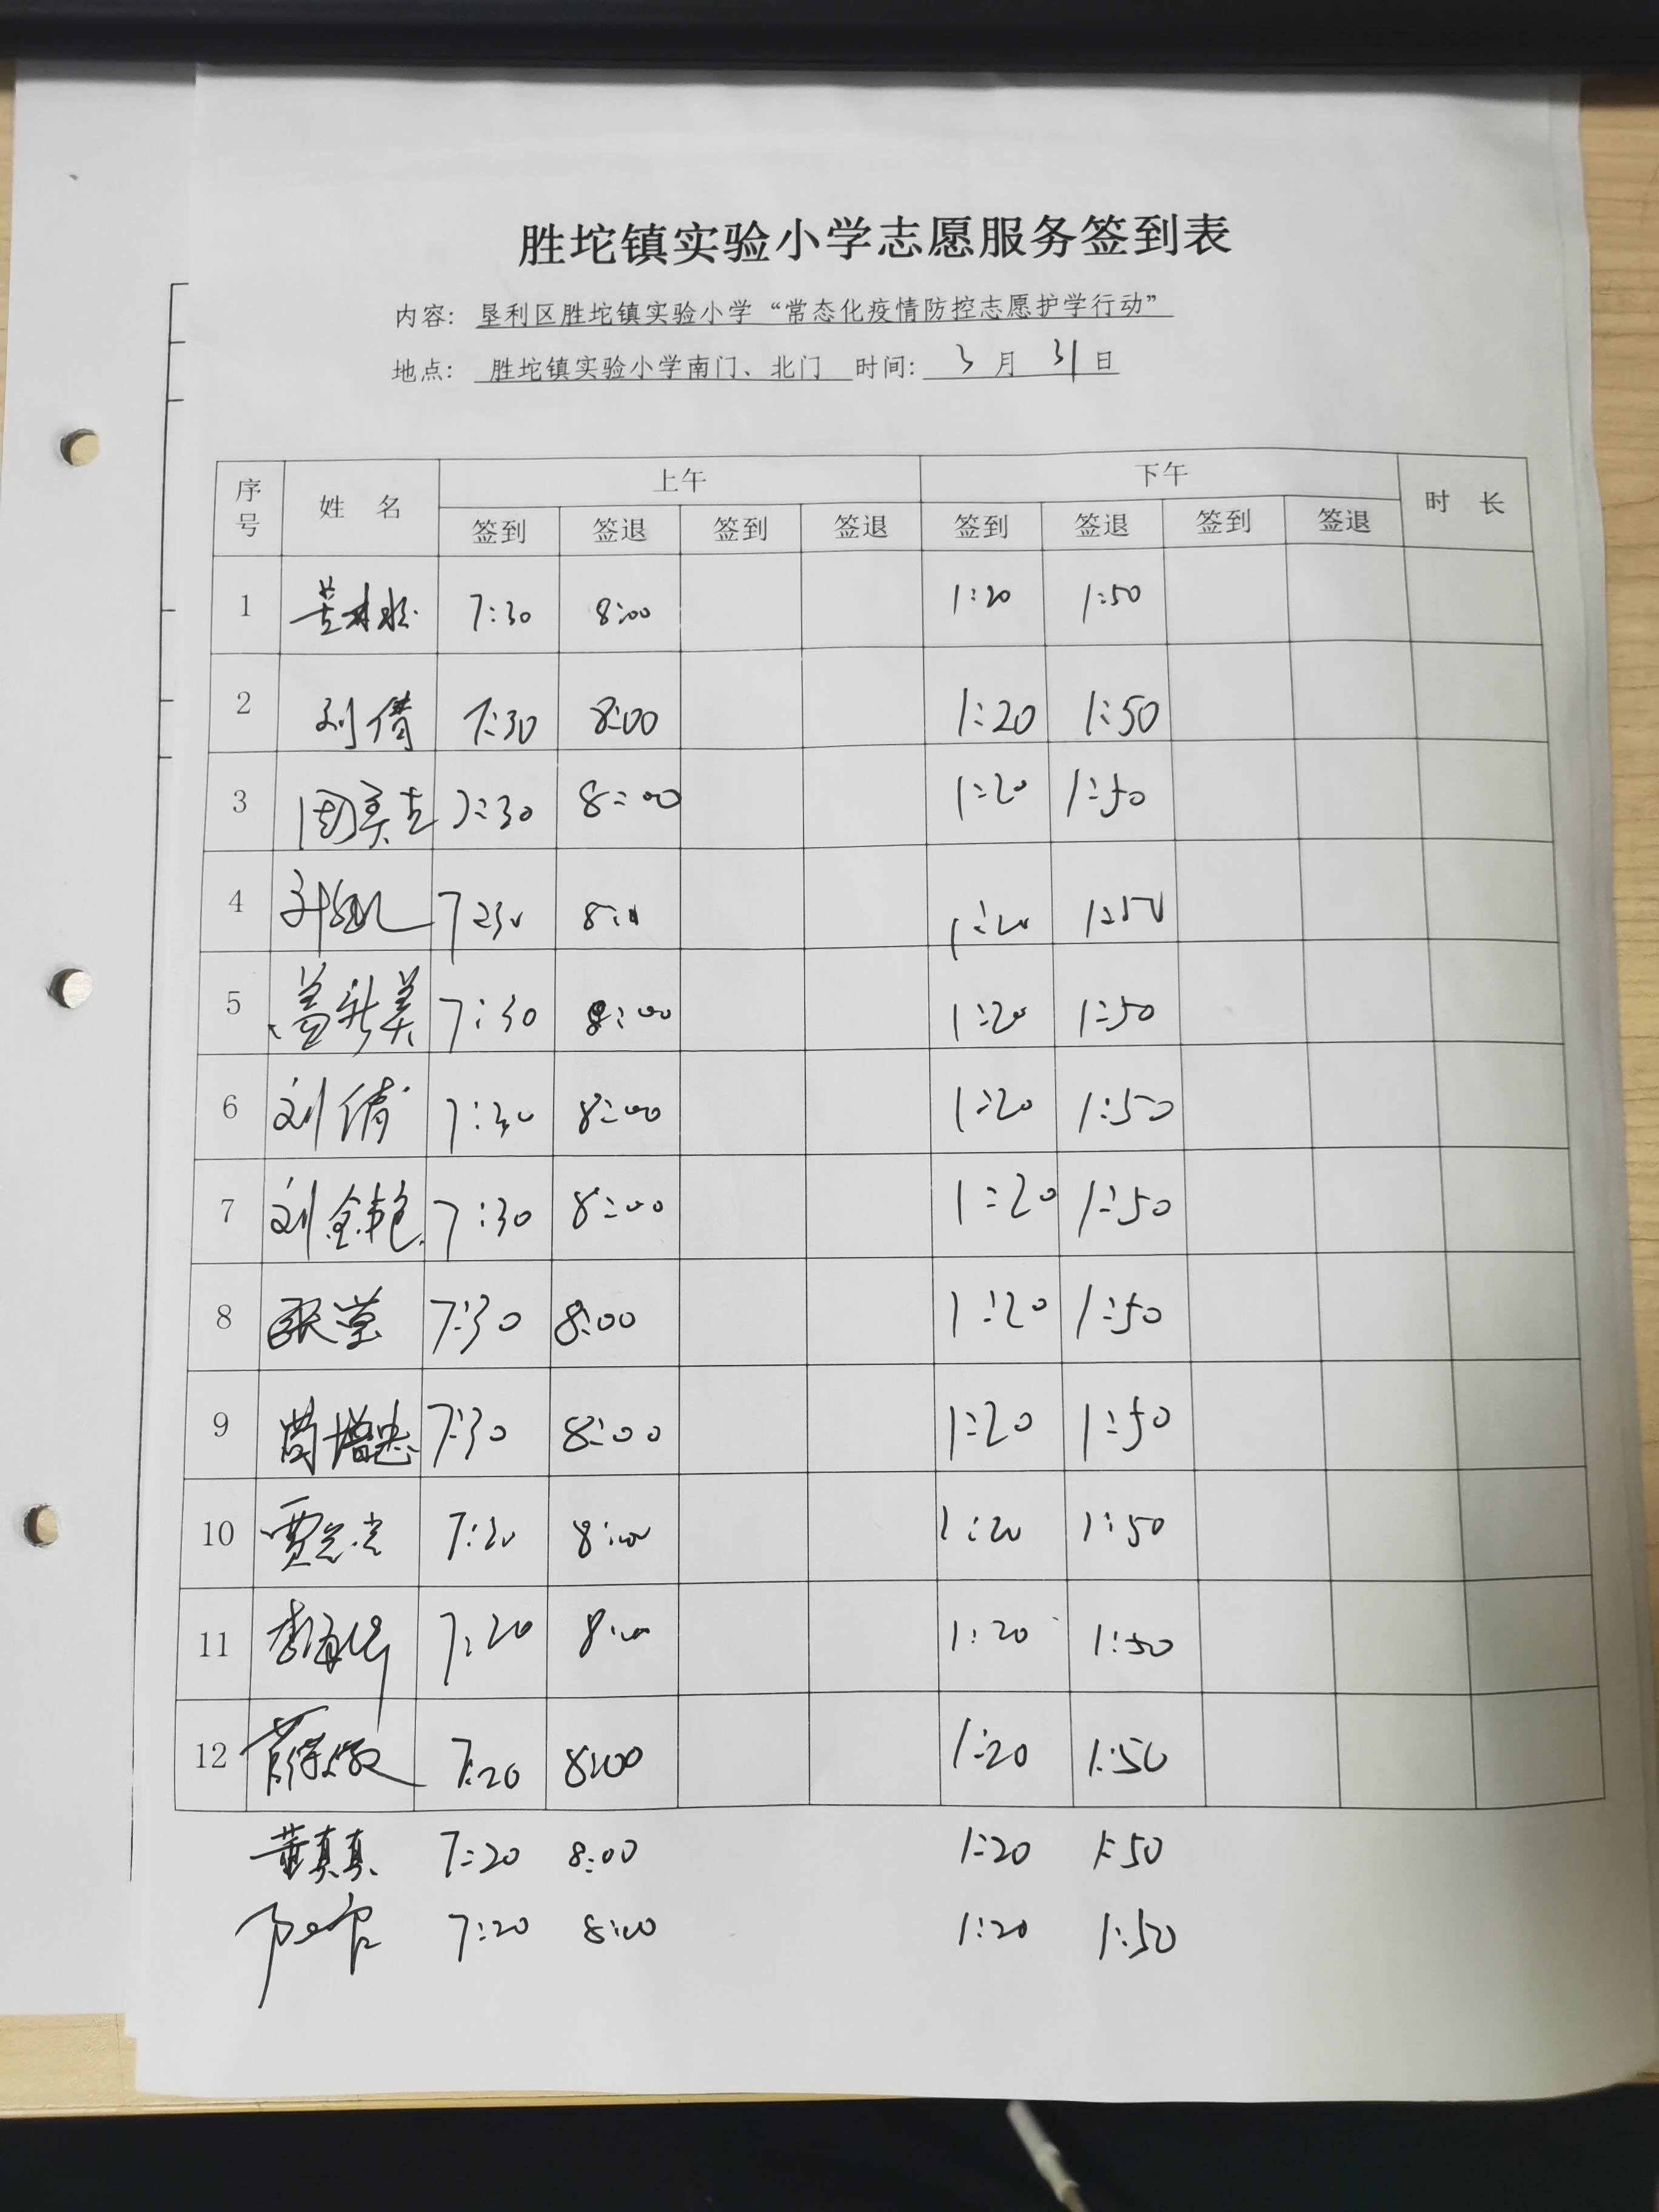 胜坨镇实验小学志愿服务签到表
内容: 垦利区胜坨镇实验小学“常态化疫情防控志愿护学行动”
地点: 胜坨镇实验小学南门、北门 时间: 3月31日
序号 姓名 上午 下午 时长
签到 签退 签到 签退 签到 签退 签到 签退
1 7:30 8:00 1:20 1:50
2 刘倩 7:30 8:00 1:20 1:50
3 7:30 8:00 1:20 1:50
4 7:30 1:20 1:50
5 盖新美 7:30 8:00 1:20 1:50
6 刘倩 7:30 8:00 1:20 1:50
7 刘金艳 7:30 8:00 1:20 1:50
8 张莹 7:30 8:00 1:20 1:50
9 苟增忠 7:30 8:00 1:20 1:50
10 8:00 1:20 1:50
11 7:20 8:00 1:20 1:50
12 7:20 8:00 1:20 1:50
董真真 7:20 8:00 1:20 1:50
7:20 8:00 1:20 1:50